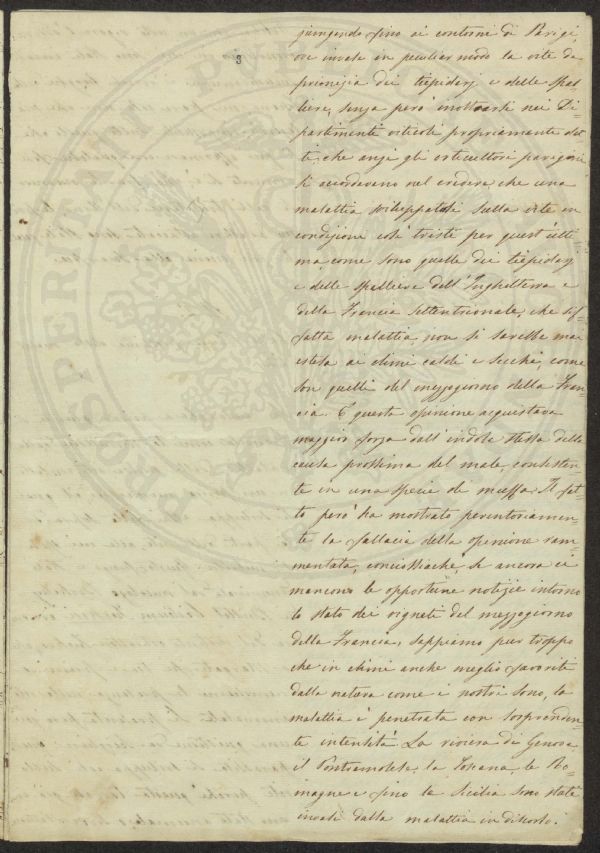 3
giungendo fino ai contorni di Parigi
ove invase in peculiar modo la vite da
primizia dei tiepidarj e delle spal=
liere, senza però inoltrarsi nei Di=
partimenti viticoli propriamente det=
ti, che anzi gli orticultori parigini
si accordavano nel credere che una
malattia sviluppatasi sulla vite in
condizione così triste per quest'ulti=
ma, come sono quelle dei tiepidarj
e delle spalliere dell'Inghilterra e
della Francia Settentrionale, che sif=
fatta malattia non si sarebbe mai
estesa ai climi caldi e secchi, come
son quelli del mezzogiorno della Fran=
cia. E questa opinione acquistava
maggior forza dall'indole stessa della
causa prossima del male, consisten=
te in una specie di muffa. Il fat=
to però ha mostrato perentoriamen=
te la fallacia della opinione ram=
mentata, conciossiachè, se ancora ci
mancono le opportune notizie intorno
lo stato dei vigneti del mezzogiorno
della Francia, sappiamo pur troppo
che in climi anche meglio favoriti
dalla natura come i nostri sono, la
malattia è penetrata con sorprenden=
te intensità. La riviera di Genova
il Pontremolese, la Toscana, le Ro=
magne e fino la Sicilia sono state
invase dalla malattia in discorso.
PROSPERITATI PUBLICAE